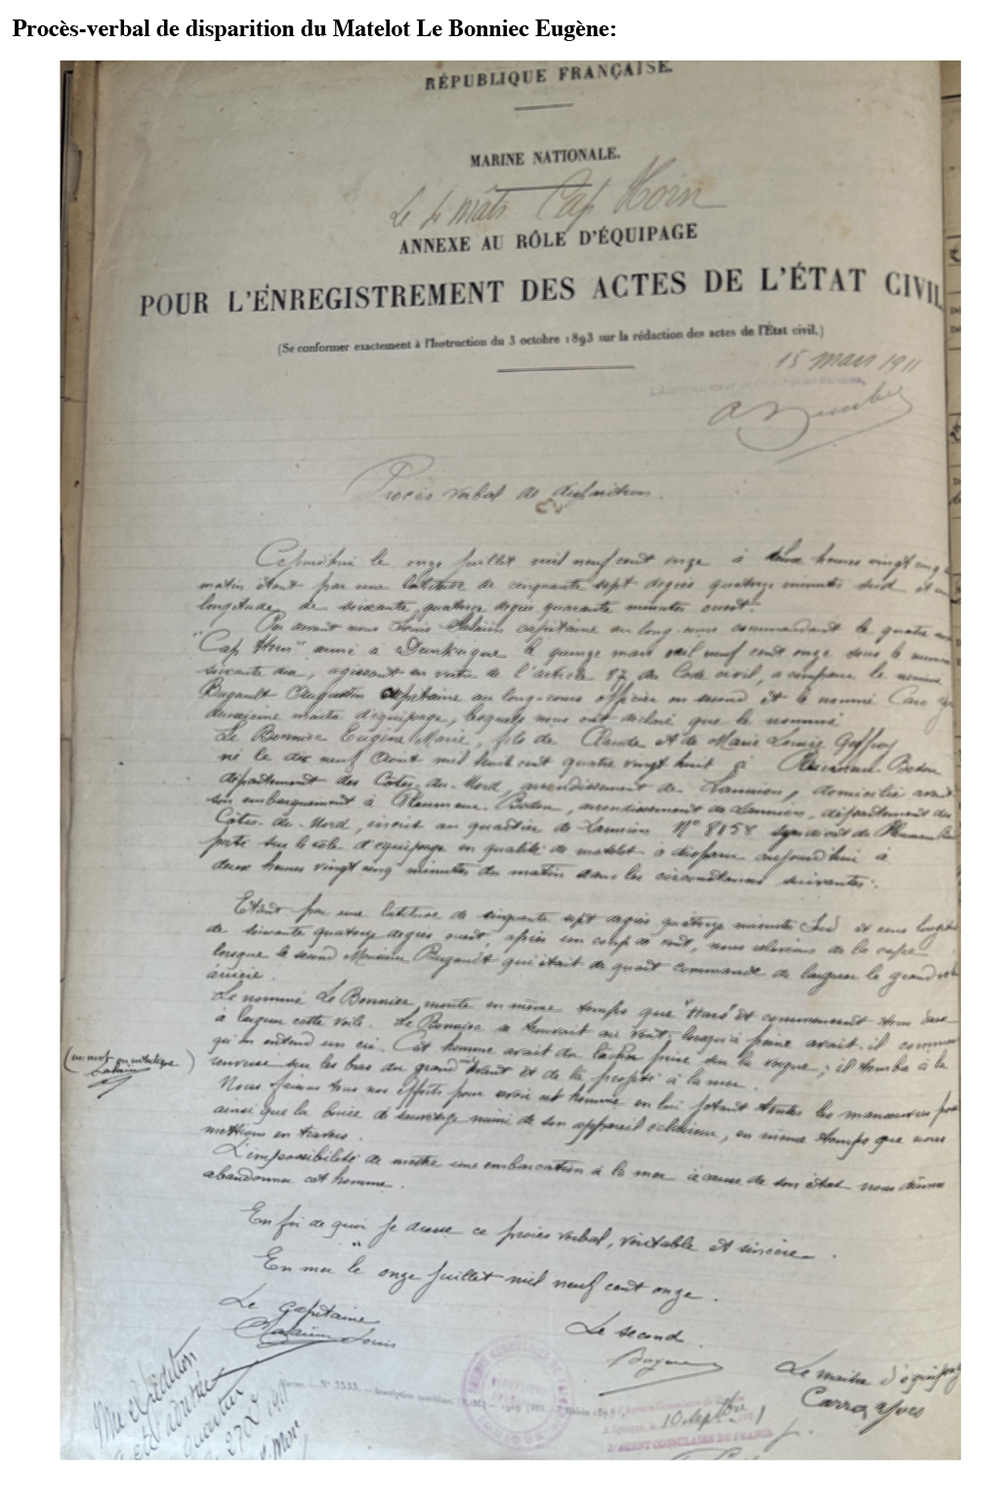 Procès-verbal de disparition du Matelot Le Bonniec Eugène:
RÉPUBLIQUE FRANÇAISE.
MARINE NATIONALE.
Le 4 mâts Cap Horn
ANNEXE AU RÔLE D'ÉQUIPAGE
POUR L'ENREGISTREMENT DES ACTES DE L'ÉTAT CIVIL
(Se conformer exactement à l'Instruction du 3 octobre 1893 sur la rédaction des actes de l'État civil.)
15 mars 1911
Procès verbal de disparition.
Cejourd'hui le onze juillet mil neuf cent onze à deux heures vingt cinq
matin étant par une latitude de cinquante sept degrés quatorze minutes sud et
longitude de soixante quatorze degrés quarante minutes ouest.
Par devant nous Louis Salaün capitaine au long-cours commandant le quatre
"Cap Horn" armé à Dunkerque le quinze mars mil neuf cent onze sous le numéro
soixante dix, agissant en vertu de l'article 87 du Code civil, a comparu le nommé
Augustin capitaine au long-cours officier en second et le nommé
deuxième maître d'équipage, lesquels nous ont déclaré que le nommé
Le Bonniec Eugène Marie, fils de Claude et de Marie Louise Geffroy
né le dix neuf Août mil huit cent quatre vingt huit à Pleumeur-Bodou
département des Côtes-du-Nord, arrondissement de Lannion, domicilié avant
son embarquement à Pleumeur-Bodou, arrondissement de Lannion, département des
Côtes-du-Nord, inscrit au quartier de Lannion N° 8158 syndicat de
porté sur le rôle d'équipage en qualité de matelot a disparu aujourd'hui à
deux heures vingt cinq minutes du matin dans les circonstances suivantes:
Etant par une latitude de cinquante sept degrés quatorze minutes Sud et une
de soixante quatorze degrés ouest, après un coup de vent, nous relevions de la cape
lorsque le second Monsieur qui était de quart commande de larguer le grand
arrière.
Le nommé Le Bonniec, monte en même temps que et commencent
à larguer cette voile. Le Bonniec se trouvait au vent, lorsqu'à peine avait-il
qu'on entend un cri. Cet homme avait dû lâcher prise sur la vergue; il tomba à la
renverse sur les bras du grand et de là projeté à la mer.
Nous faisons tous nos efforts pour avoir cet homme en lui jetant toutes les manœuvres
ainsi que la bouée de sauvetage muni de son appareil, en même temps que nous
mettions en travers.
L'impossibilité de mettre une embarcation à la mer à cause de son état nous
abandonner cet homme.
(un mot
Salaün
En foi de quoi je dresse ce procès verbal, véritable et sincère.
En mer le onze juillet mil neuf cent onze.
Le capitaine
Salaün Louis
Le second
Le maître d'équipage
Carro Yves
10 Septbre 1
L'AGENT CONSULAIRE DE FRANCE